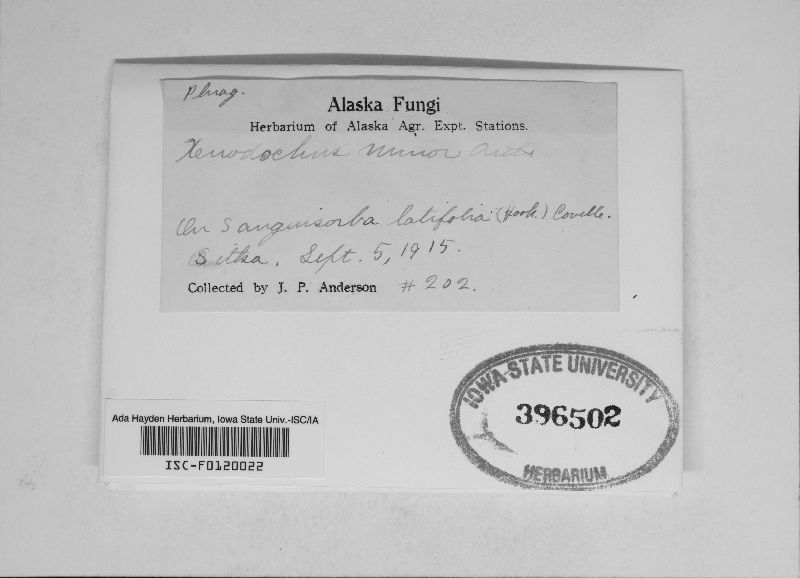 Phrag.
Alaska Fungi
Herbarium of Alaska Agr. Expt. Stations.
Xenodochus minor Arth
On Sanguisorba latifolia (Hook.) Coville.
Sitka, Sept. 5, 1915.
Collected by J. P. Anderson # 202.
IOWA STATE UNIVERSITY
396502
HERBARIUM
Ada Hayden Herbarium, Iowa State Univ.-ISC/IA
ISC-F0120022